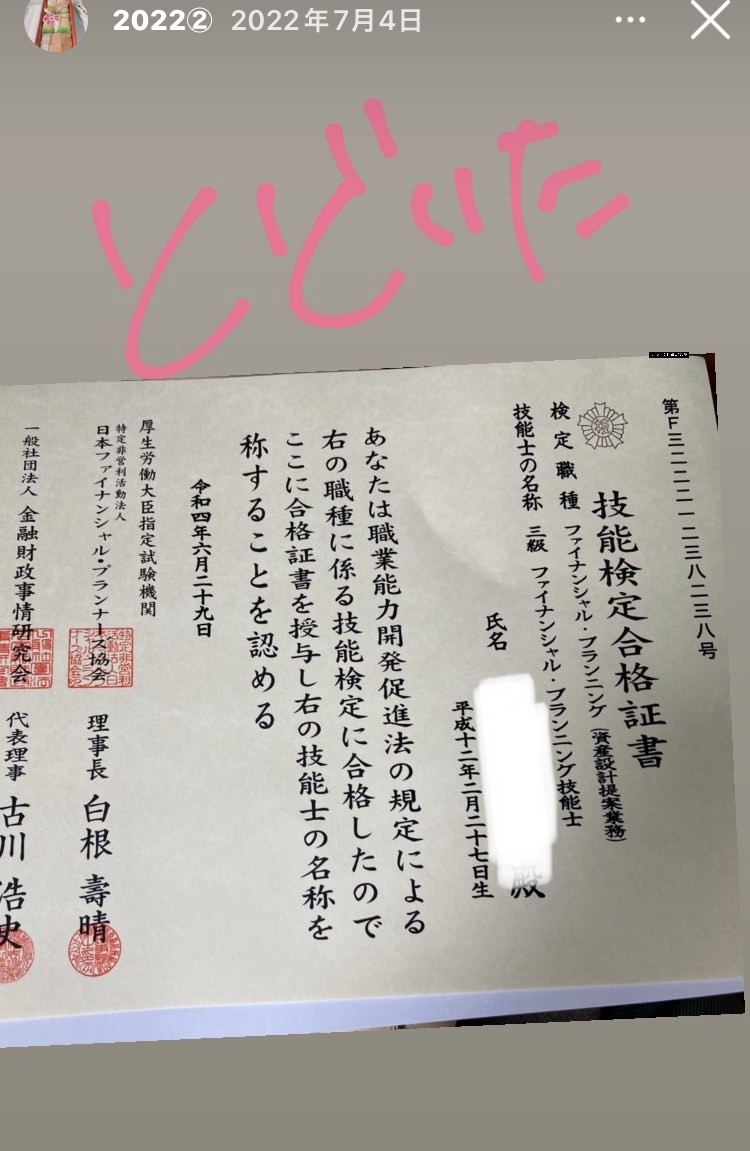 2022② 2022年7月4日
とどいた
第F三二二二一二三八二三八号
技能検定合格証書
検定職種 ファイナンシャル・プランニング(資産設計提案業務)
技能士の名称 三級 ファイナンシャル・プランニング技能士
氏名 殿
平成十二年二月二十七日生
あなたは職業能力開発促進法の規定による
右の職種に係る技能検定に合格したので
ここに合格証書を授与し右の技能士の名称を
称することを認める
令和四年六月二十九日
厚生労働大臣指定試験機関
特定非営利活動法人
日本ファイナンシャル・プランナーズ協会 理事長 白根 壽晴
一般社団法人 金融財政事情研究会 代表理事 古川 浩史